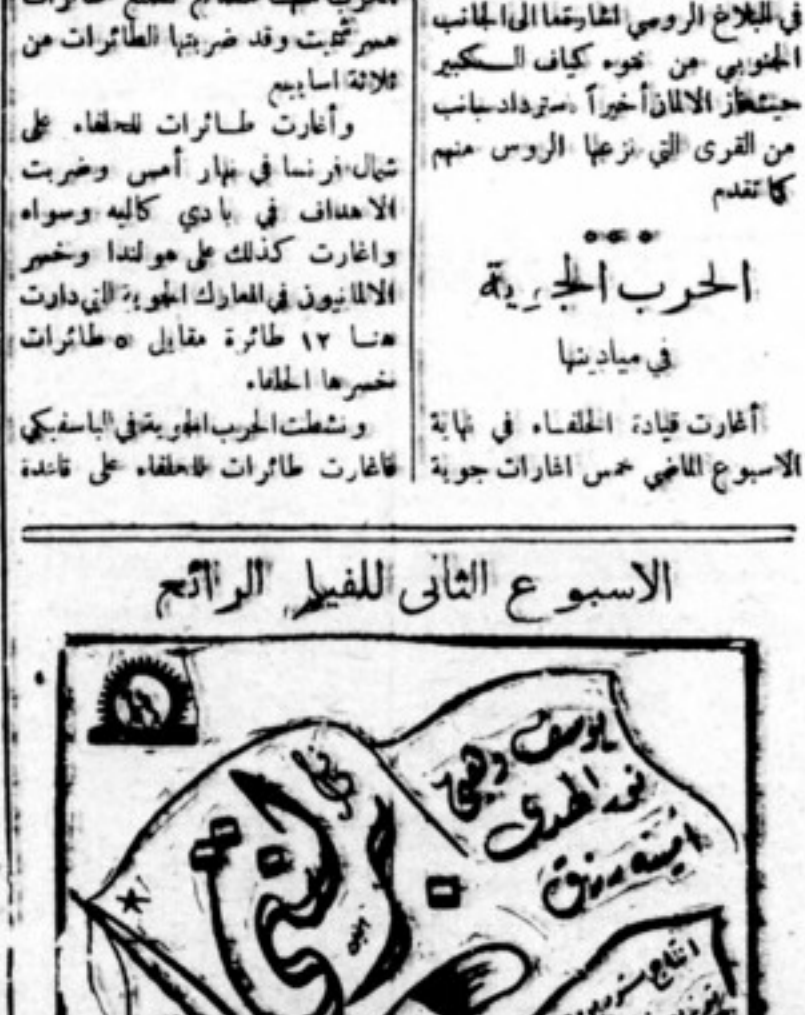 في البلاغ الروسي اشارتنا الى الجانب
الجنوبي من نتوء كياف الكبير
حيث فاز الالمان أخيراً باسترداد جانب
من القرى التي نزعها الروس منهم
كما تقدم
الحرب الجوية
في ميادينها
أغارت قيادة الحلفاء في نهاية
الاسبوع الماضي خمس اغارات جوية
وقد ضربتها الطائرات من
ثلاثة اسابيع
وأغارت طائرات للحلفاء على
شمال فرنسا في نهار أمس وضربت
الاهداف في بادي كاليه وسواه
واغارت كذلك على هولندا وخسر
الالمانيون في المعارك الجوية التي دارت
هنا ١٢ طائرة مقابل ٥ طائرات
خسرها الحلفاء
ونشطت الحرب الجوية في الباسفيكي
فاغارت طائرات للحلفاء على قاعدة
الاسبوع الثانى للفيلم الرائع
يوسف وهبي
نور الهدى
امينه رزق
انتاج